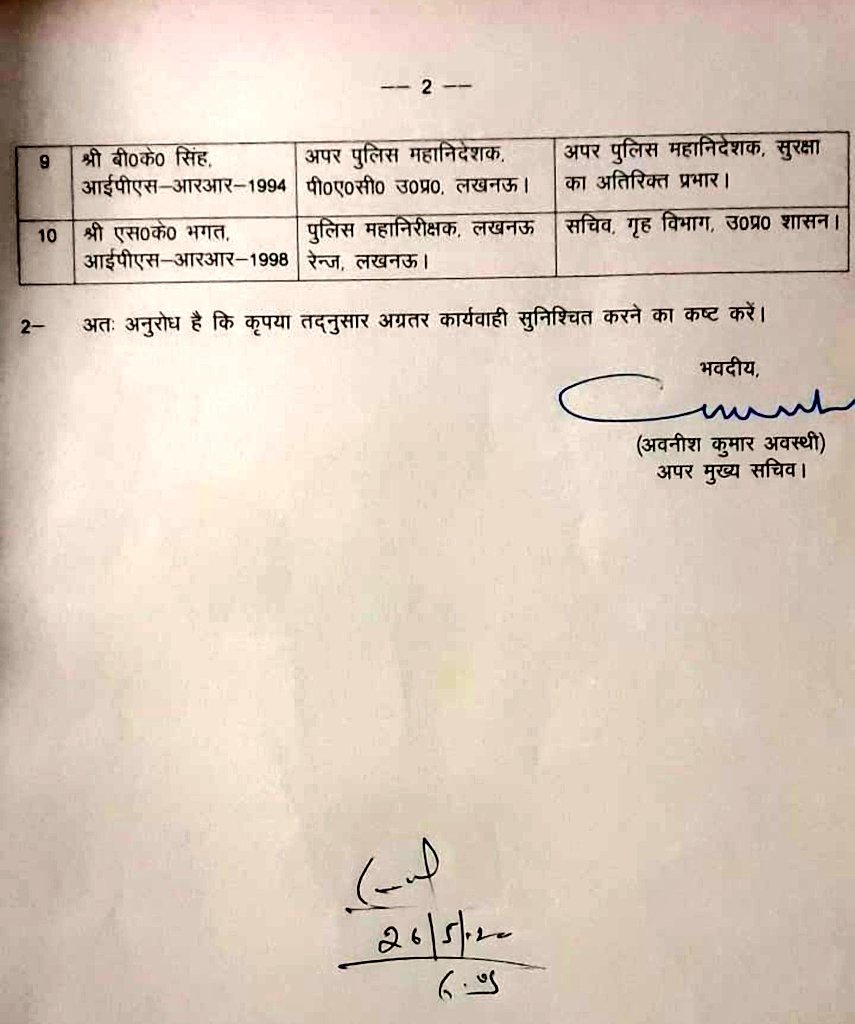 -- 2 --
9 श्री बी0के0 सिंह, अपर पुलिस महानिदेशक, अपर पुलिस महानिदेशक, सुरक्षा
आईपीएस-आरआर-1994 पी0ए0सी0 उ0प्र0, लखनऊ। का अतिरिक्त प्रभार।
10 श्री एस0के0 भगत, पुलिस महानिरीक्षक, लखनऊ सचिव, गृह विभाग, उ0प्र0 शासन।
आईपीएस-आरआर-1998 रेन्ज, लखनऊ।
2- अतः अनुरोध है कि कृपया तद्नुसार अग्रतर कार्यवाही सुनिश्चित करने का कष्ट करें।
भवदीय,
(अवनीश कुमार अवस्थी)
अपर मुख्य सचिव।
26/5/20